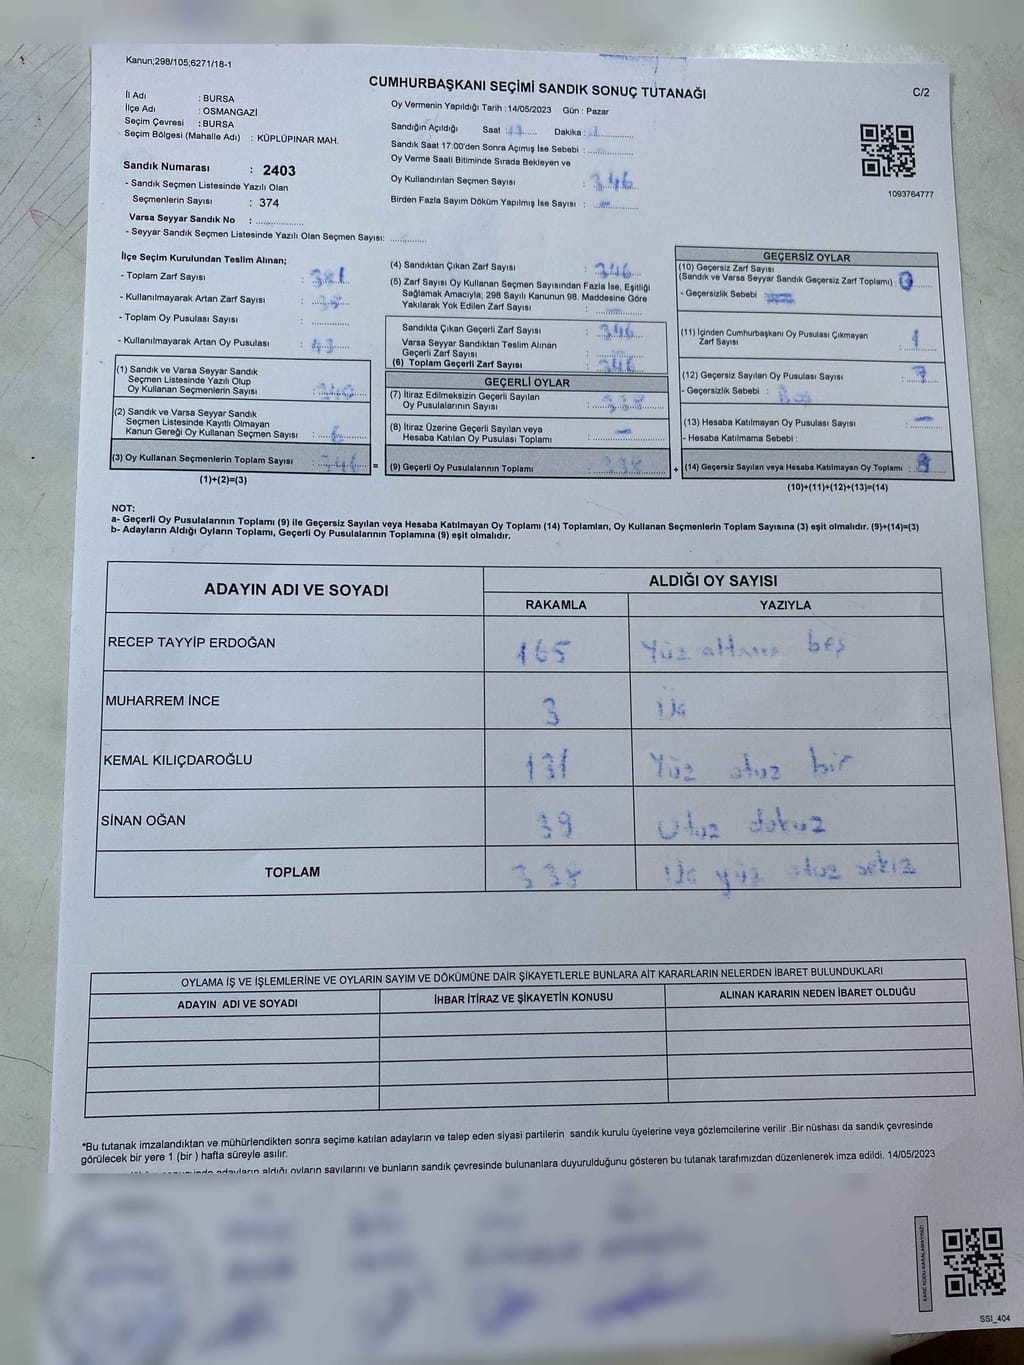 Kanun;298/105;6271/18-1
CUMHURBAŞKANI SEÇİMİ SANDIK SONUÇ TUTANAĞI
C/2
İl Adı : BURSA
İlçe Adı : OSMANGAZİ
Seçim Çevresi : BURSA
Seçim Bölgesi (Mahalle Adı) : KÜPLÜPINAR MAH.
Oy Vermenin Yapıldığı Tarih : 14/05/2023 Gün : Pazar
Sandığın Açıldığı Saat : Dakika :
Sandık Saat 17:00'den Sonra Açımış İse Sebebi :
Oy Verme Saati Bitiminde Sırada Bekleyen ve
Oy Kullandırılan Seçmen Sayısı : 346
Birden Fazla Sayım Döküm Yapılmış İse Sayısı : -
1093764777
Sandık Numarası : 2403
- Sandık Seçmen Listesinde Yazılı Olan
Seçmenlerin Sayısı : 374
Varsa Seyyar Sandık No :
- Seyyar Sandık Seçmen Listesinde Yazılı Olan Seçmen Sayısı:
İlçe Seçim Kurulundan Teslim Alınan;
- Toplam Zarf Sayısı : 381
- Kullanılmayarak Artan Zarf Sayısı : 35
- Toplam Oy Pusulası Sayısı :
- Kullanılmayarak Artan Oy Pusulası : 43
(1) Sandık ve Varsa Seyyar Sandık
Seçmen Listesinde Yazılı Olup
Oy Kullanan Seçmenlerin Sayısı : 340
(2) Sandık ve Varsa Seyyar Sandık
Seçmen Listesinde Kayıtlı Olmayan
Kanun Gereği Oy Kullanan Seçmen Sayısı : 6
(3) Oy Kullanan Seçmenlerin Toplam Sayısı : 346 =
(1)+(2)=(3)
(4) Sandıktan Çıkan Zarf Sayısı : 346
(5) Zarf Sayısı Oy Kullanan Seçmen Sayısından Fazla İse, Eşitliği
Sağlamak Amacıyla; 298 Sayılı Kanunun 98. Maddesine Göre
Yakılarak Yok Edilen Zarf Sayısı : -
Sandıkta Çıkan Geçerli Zarf Sayısı : 346
Varsa Seyyar Sandıktan Teslim Alınan
Geçerli Zarf Sayısı :
(6) Toplam Geçerli Zarf Sayısı : 346
GEÇERLİ OYLAR
(7) İtiraz Edilmeksizin Geçerli Sayılan
Oy Pusulalarının Sayısı : 338
(8) İtiraz Üzerine Geçerli Sayılan veya
Hesaba Katılan Oy Pusulası Toplamı : -
(9) Geçerli Oy Pusulalarının Toplamı : 338 +
GEÇERSİZ OYLAR
(10) Geçersiz Zarf Sayısı
(Sandık ve Varsa Seyyar Sandık Geçersiz Zarf Toplamı) :
- Geçersizlik Sebebi :
(11) İçinden Cumhurbaşkanı Oy Pusulası Çıkmayan
Zarf Sayısı : 1
(12) Geçersiz Sayılan Oy Pusulası Sayısı : 7
- Geçersizlik Sebebi : Boş
(13) Hesaba Katılmayan Oy Pusulası Sayısı : -
- Hesaba Katılmama Sebebi :
(14) Geçersiz Sayılan veya Hesaba Katılmayan Oy Toplamı : 8
(10)+(11)+(12)+(13)=(14)
NOT:
a- Geçerli Oy Pusulalarının Toplamı (9) ile Geçersiz Sayılan veya Hesaba Katılmayan Oy Toplamı (14) Toplamları, Oy Kullanan Seçmenlerin Toplam Sayısına (3) eşit olmalıdır. (9)+(14)=(3)
b- Adayların Aldığı Oyların Toplamı, Geçerli Oy Pusulalarının Toplamına (9) eşit olmalıdır.
ADAYIN ADI VE SOYADI
ALDIĞI OY SAYISI
RAKAMLA YAZIYLA
RECEP TAYYİP ERDOĞAN 165 Yüz altmış beş
MUHARREM İNCE 3 Üç
KEMAL KILIÇDAROĞLU 131 Yüz otuz bir
SİNAN OĞAN 39 Otuz dokuz
TOPLAM 338 Üç yüz otuz sekiz
OYLAMA İŞ VE İŞLEMLERİNE VE OYLARIN SAYIM VE DÖKÜMÜNE DAİR ŞİKAYETLERLE BUNLARA AİT KARARLARIN NELERDEN İBARET BULUNDUKLARI
ADAYIN ADI VE SOYADI İHBAR İTİRAZ VE ŞİKAYETİN KONUSU ALINAN KARARIN NEDEN İBARET OLDUĞU
*Bu tutanak imzalandıktan ve mühürlendikten sonra seçime katılan adayların ve talep eden siyasi partilerin sandık kurulu üyelerine veya gözlemcilerine verilir .Bir nüshası da sandık çevresinde
görülecek bir yere 1 (bir ) hafta süreyle asılır.
adayların aldığı oyların sayılarını ve bunların sandık çevresinde bulunanlara duyurulduğunu gösteren bu tutanak tarafımızdan düzenlenerek imza edildi. 14/05/2023
KARE KODU KARALAMAYINIZ!
SSI_404